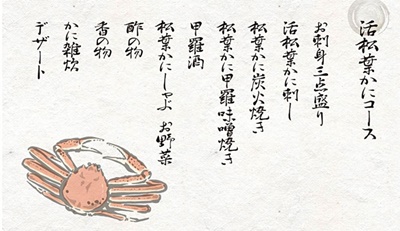 活松葉かにコース
お刺身三点盛り
活松葉かに刺し
松葉かに炭火焼き
松葉かに甲羅味噌焼き
甲羅酒
松葉かにしゃぶ お野菜
酢の物
香の物
かに雑炊
デザート